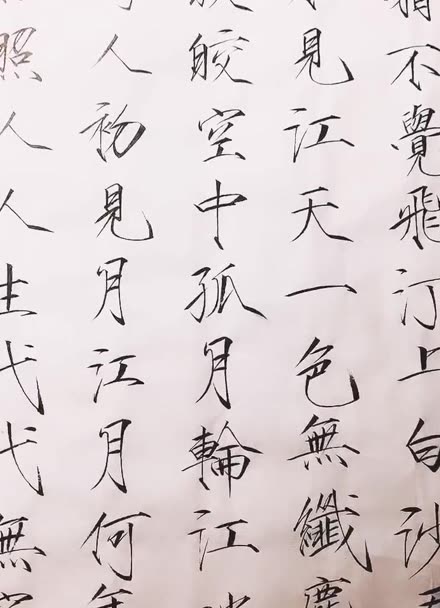 不覺飛汀上白沙
見江天一色無纖塵
皎空中孤月輪江
人初見月江月何年
照人人生代代無